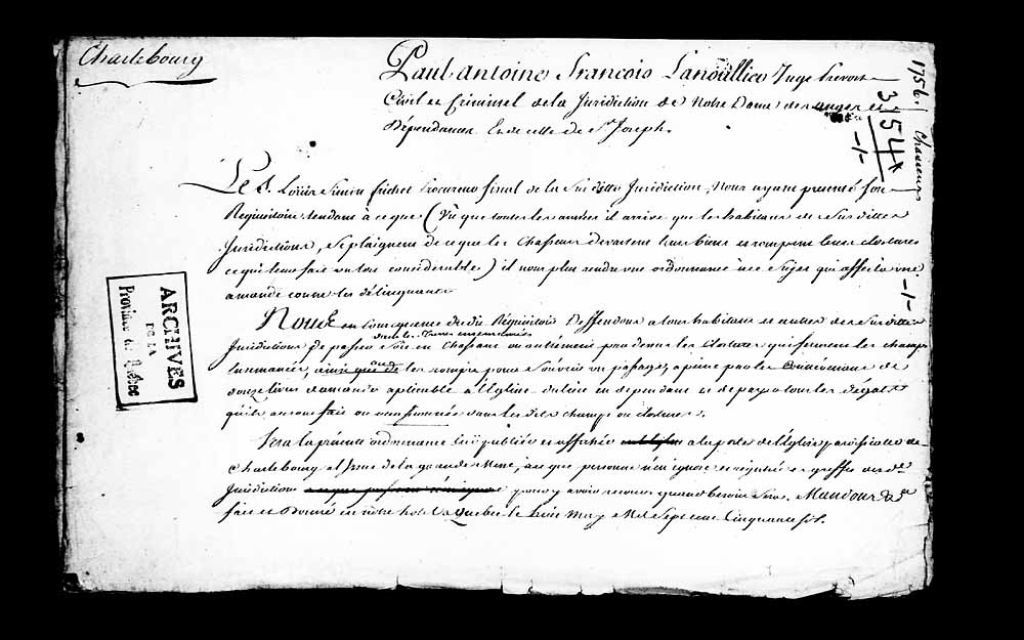 Charlebourg
Paul antoine francois Lanoullier Juge Prevost
Civil et Criminel de la Juridiction de Notre Dame des anges et
Dépendances. Et de celle de St Joseph.
1756. Chasseurs
3154
-1-
-1-
Le S. Simon Procureur fiscal de la Susditte Juridiction, Nous ayant presenté son
Requisitoire tendant à ce que (Vu que toutes les années il arrive que les habitans de Susdittes
Juridictions, se plaignent de ce que les Chasseurs devastent leurs biens et rompent leurs clostures
ce qui leur fait un tort considerable) il nous plut rendre une ordonnance à ce Sujet qui affecta une
amande contre les délinquants
Nous en Consequence dudit Réquisitoire Deffendons a tous habitans et autres de Susdittes
dans les Terres ensemencées
Juridictions de passer Soit en Chassant ou autrement par dessus les clostures qui ferment les champs
ainsi que de les rompre pour s'ouvrir un passage, a peine par les de
douze livres d'amande aplicable à l'Eglise du lieu et de payer tous les dégats
qu'ils auront fait ou occasionnés dans les dits champs ou clostures.
Sera la présente ordonnance lue publiée et affichée a la porte de l'Eglise paroissiale de
Charlebourg a l'issue de la grande Messe, à ce que personne n'en ignore et registrée es greffe des dte
Juridictions pour y avoir recours quand besoin sera. Mandons &a
fait et Donné en notre hotel a Quebec le trois may Mil Sept cent Cinquante six.
ARCHIVES
DE LA
Province de Québec